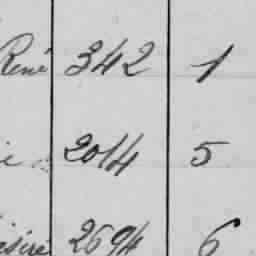 René 342 1
ie 2014 5
ésiré 2694 6